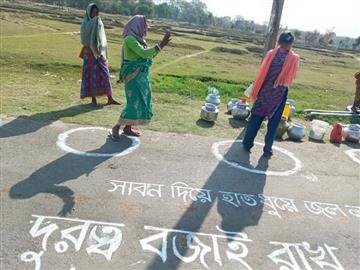 সাবান দিয়ে হাত ধুয়ে জল
দূরত্ব বজাই রাখ